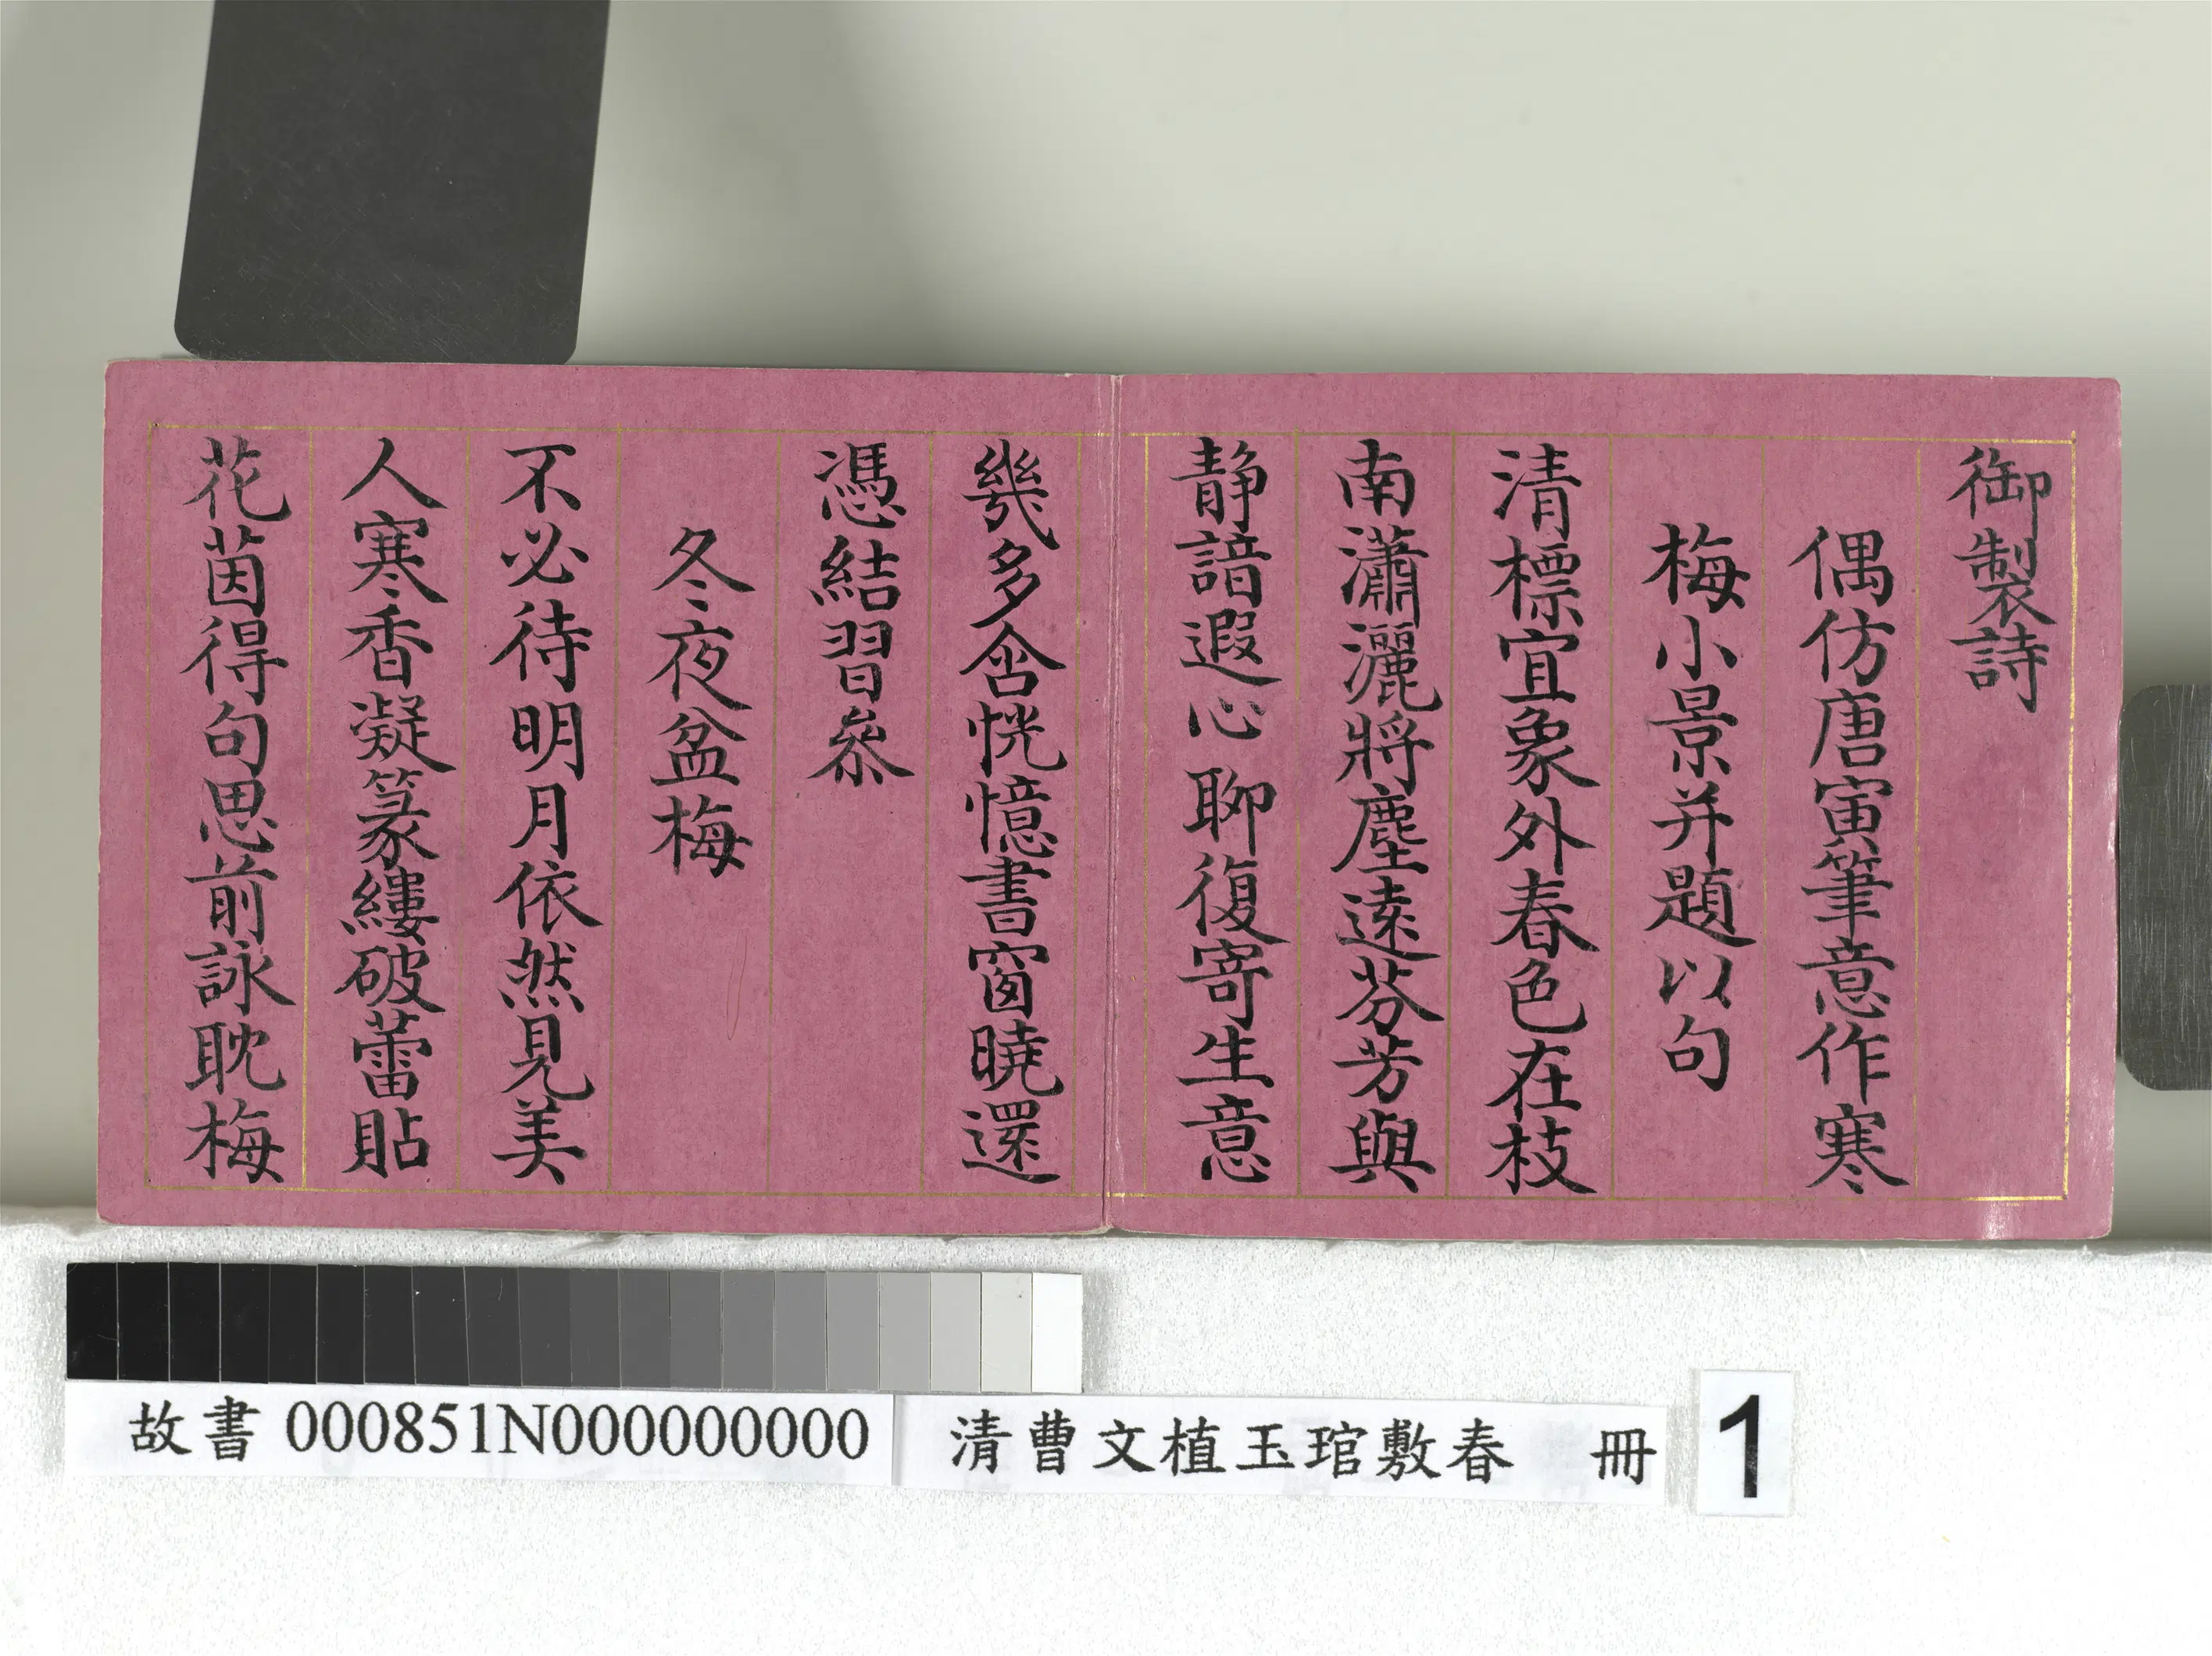 御製詩
偶仿唐寅筆意作寒
梅小景并題以句
清標宜象外春色在枝
南瀟灑將塵遠芬芳與
靜諳遐心聊復寄生意
幾多含恍憶書窗曉還
憑結習叅
冬夜盆梅
不必待明月依然見美
人寒香凝篆縷破蕾貼
花茵得句思前詠耽梅
故書 000851N000000000
清曹文植玉琯敷春 冊
1